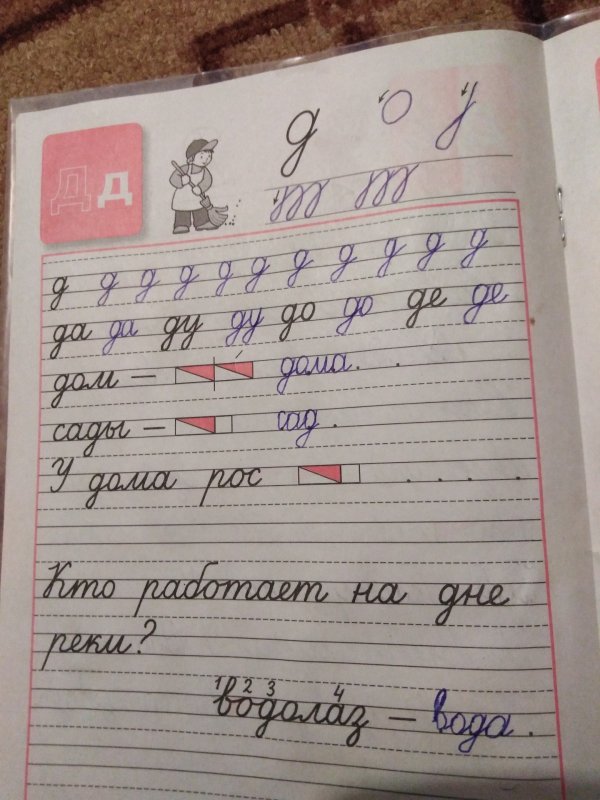 Д д д
д д д д д д д д д д
да да ду ду до до де де
дом — дома. .
сады — сад .
У дома рос . . . .
Кто работает на дне
реки?
1 2 3 4
водолаз — вода .